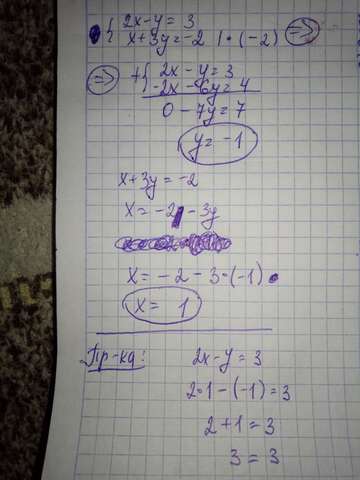 { 2x-y=3
x+3y=-2 | •(-2) ⇒
⇒ +{ 2x - y = 3
-2x - 6y = 4
0 - 7y = 7
y = -1
x+3y=-2
x = -2 - 3y
x = -2 - 3•(-1)
x = 1
Пр-ка:
2x-y=3
2•1-(-1)=3
2+1=3
3=3